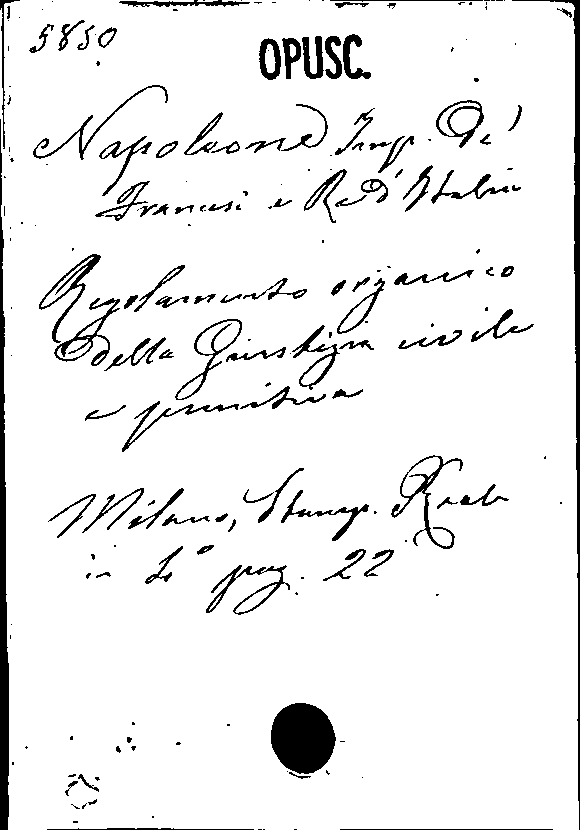 5850
OPUSC.
Napoleone Imp. De'
Francesi e Re d'Italia
Regolamento organico
della Giustizia civile
e punitiva
Milano, Stamp. Reale
in 4° pag. 22